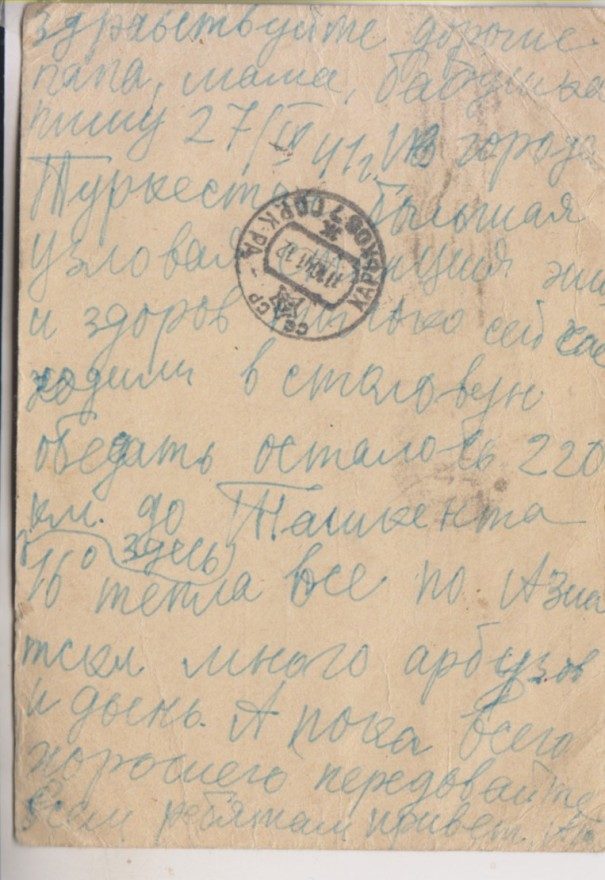 здравствуйте дорогие
папа, мама, бабушка
пишу 27/IX 41г. из города
Туркестан большая
узловая станция жив
и здоров только сейчас
ходили в столовую
обедать осталось 220
км. до Ташкента
здесь
16° тепла все по Азиа
тски много арбузов
и дынь. А пока всего
хорошего передовайте
всем ребятам привет.
ХАРЬКОВ 7
СССР